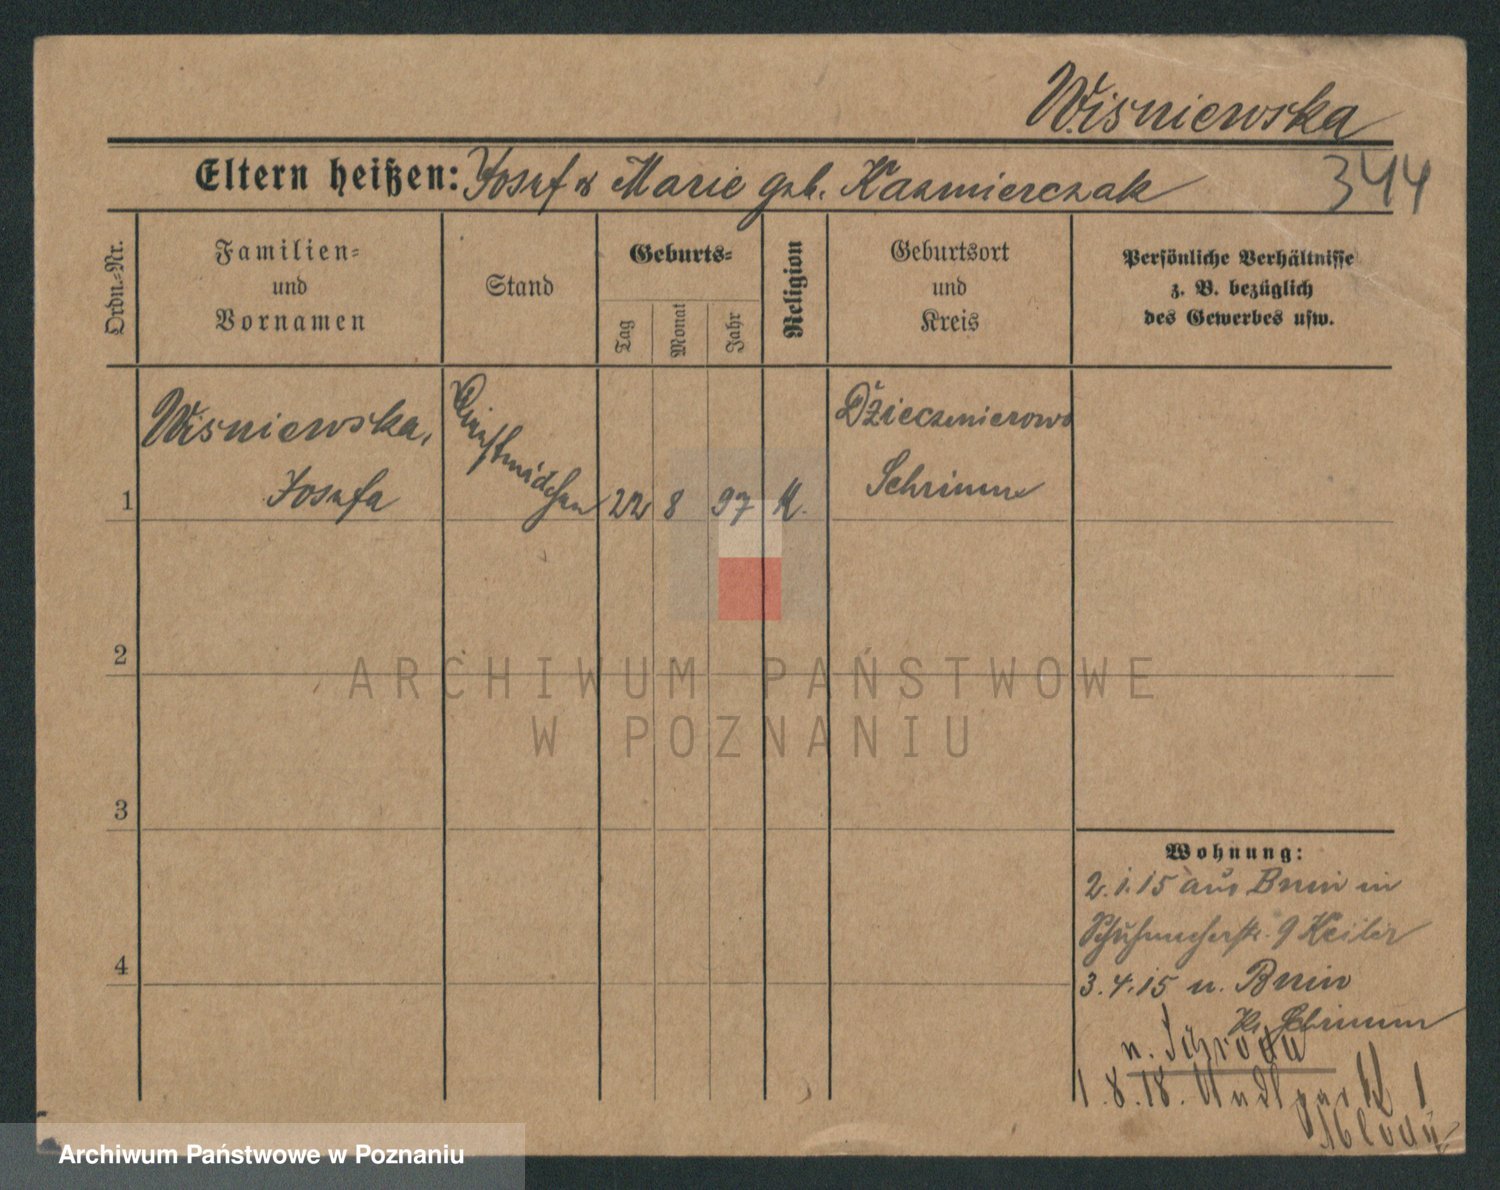 Wisniewska
Eltern heißen: Josef & Marie geb. Kazmierczak
344
Ordn.-Nr.
Familien-
und
Vornamen
Stand
Geburts-
Tag
Monat
Jahr
Religion
Geburtsort
und
Kreis
Persönliche Verhältnisse
z. B. bezüglich
des Gewerbes usw.
1
Wisniewska,
Josefa
Dienstmädchen
22
8
97
K.
Džieczmierowo
Schrimm
2
3
4
Wohnung:
2.1.15 aus Bnin in
Schuhmacherstr. 9 Keiler
3.4.15 n. Bnin
Kr. Schrimm
n. Schroda
1.8.18.
ARCHIWUM PAŃSTWOWE
W POZNANIU
Archiwum Państwowe w Poznaniu